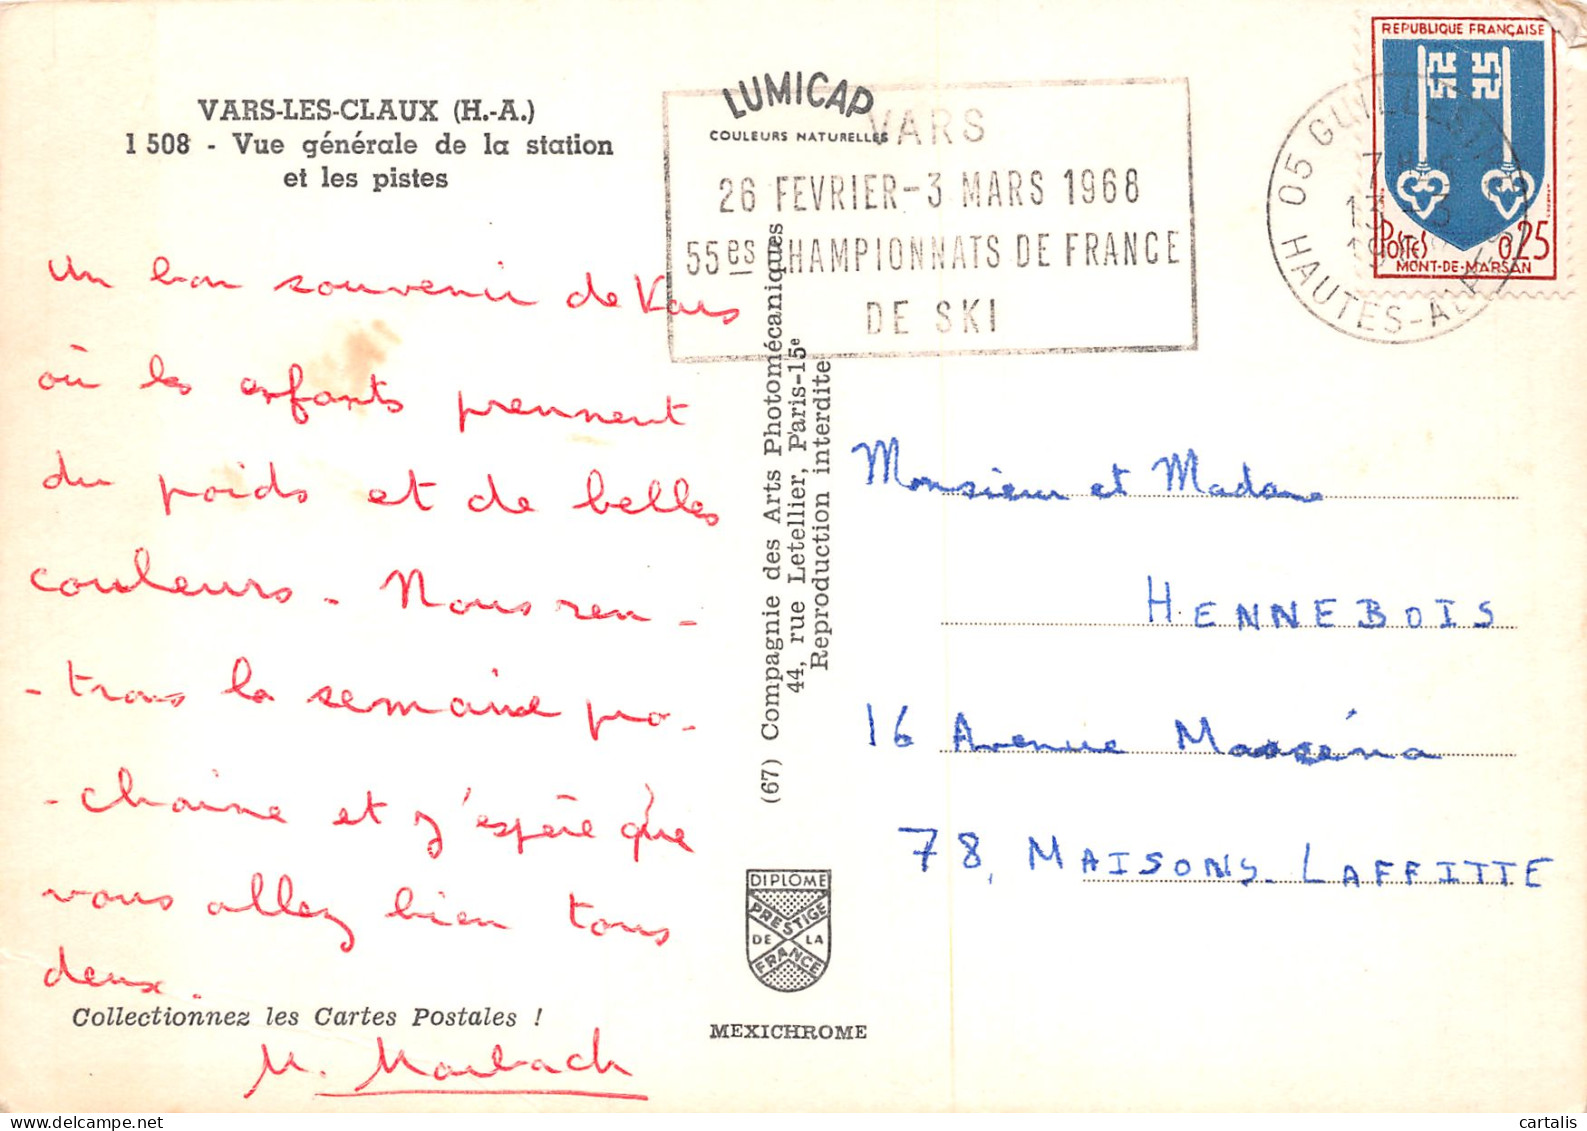 VARS-LES-CLAUX (H.-A.)
1 508 - Vue générale de la station
et les pistes
Un bon souvenir de Vars
où les enfants prennent
du poids et de belles
couleurs - Nous ren -
- trons la semaine pro -
- chaine et j'espère que
vous allez bien tous
deux.
Collectionnez les Cartes Postales !
M. Morbach
LUMICAP
COULEURS NATURELLES
VARS
26 FEVRIER-3 MARS 1968
55es CHAMPIONNATS DE FRANCE
DE SKI
(67) Compagnie des Arts Photomécaniques
44, rue Letellier, Paris-15e
Reproduction interdite
DIPLOME
PRESTIGE
DE LA
FRANCE
MEXICHROME
REPUBLIQUE FRANÇAISE
POSTES 0,25
MONT-DE-MARSAN
05 GUILLESTRE
13 - 3
HAUTES-ALPES
Monsieur et Madame
HENNEBOIS
16 Avenue Masséna
78, MAISONS-LAFFITTE
cartalis